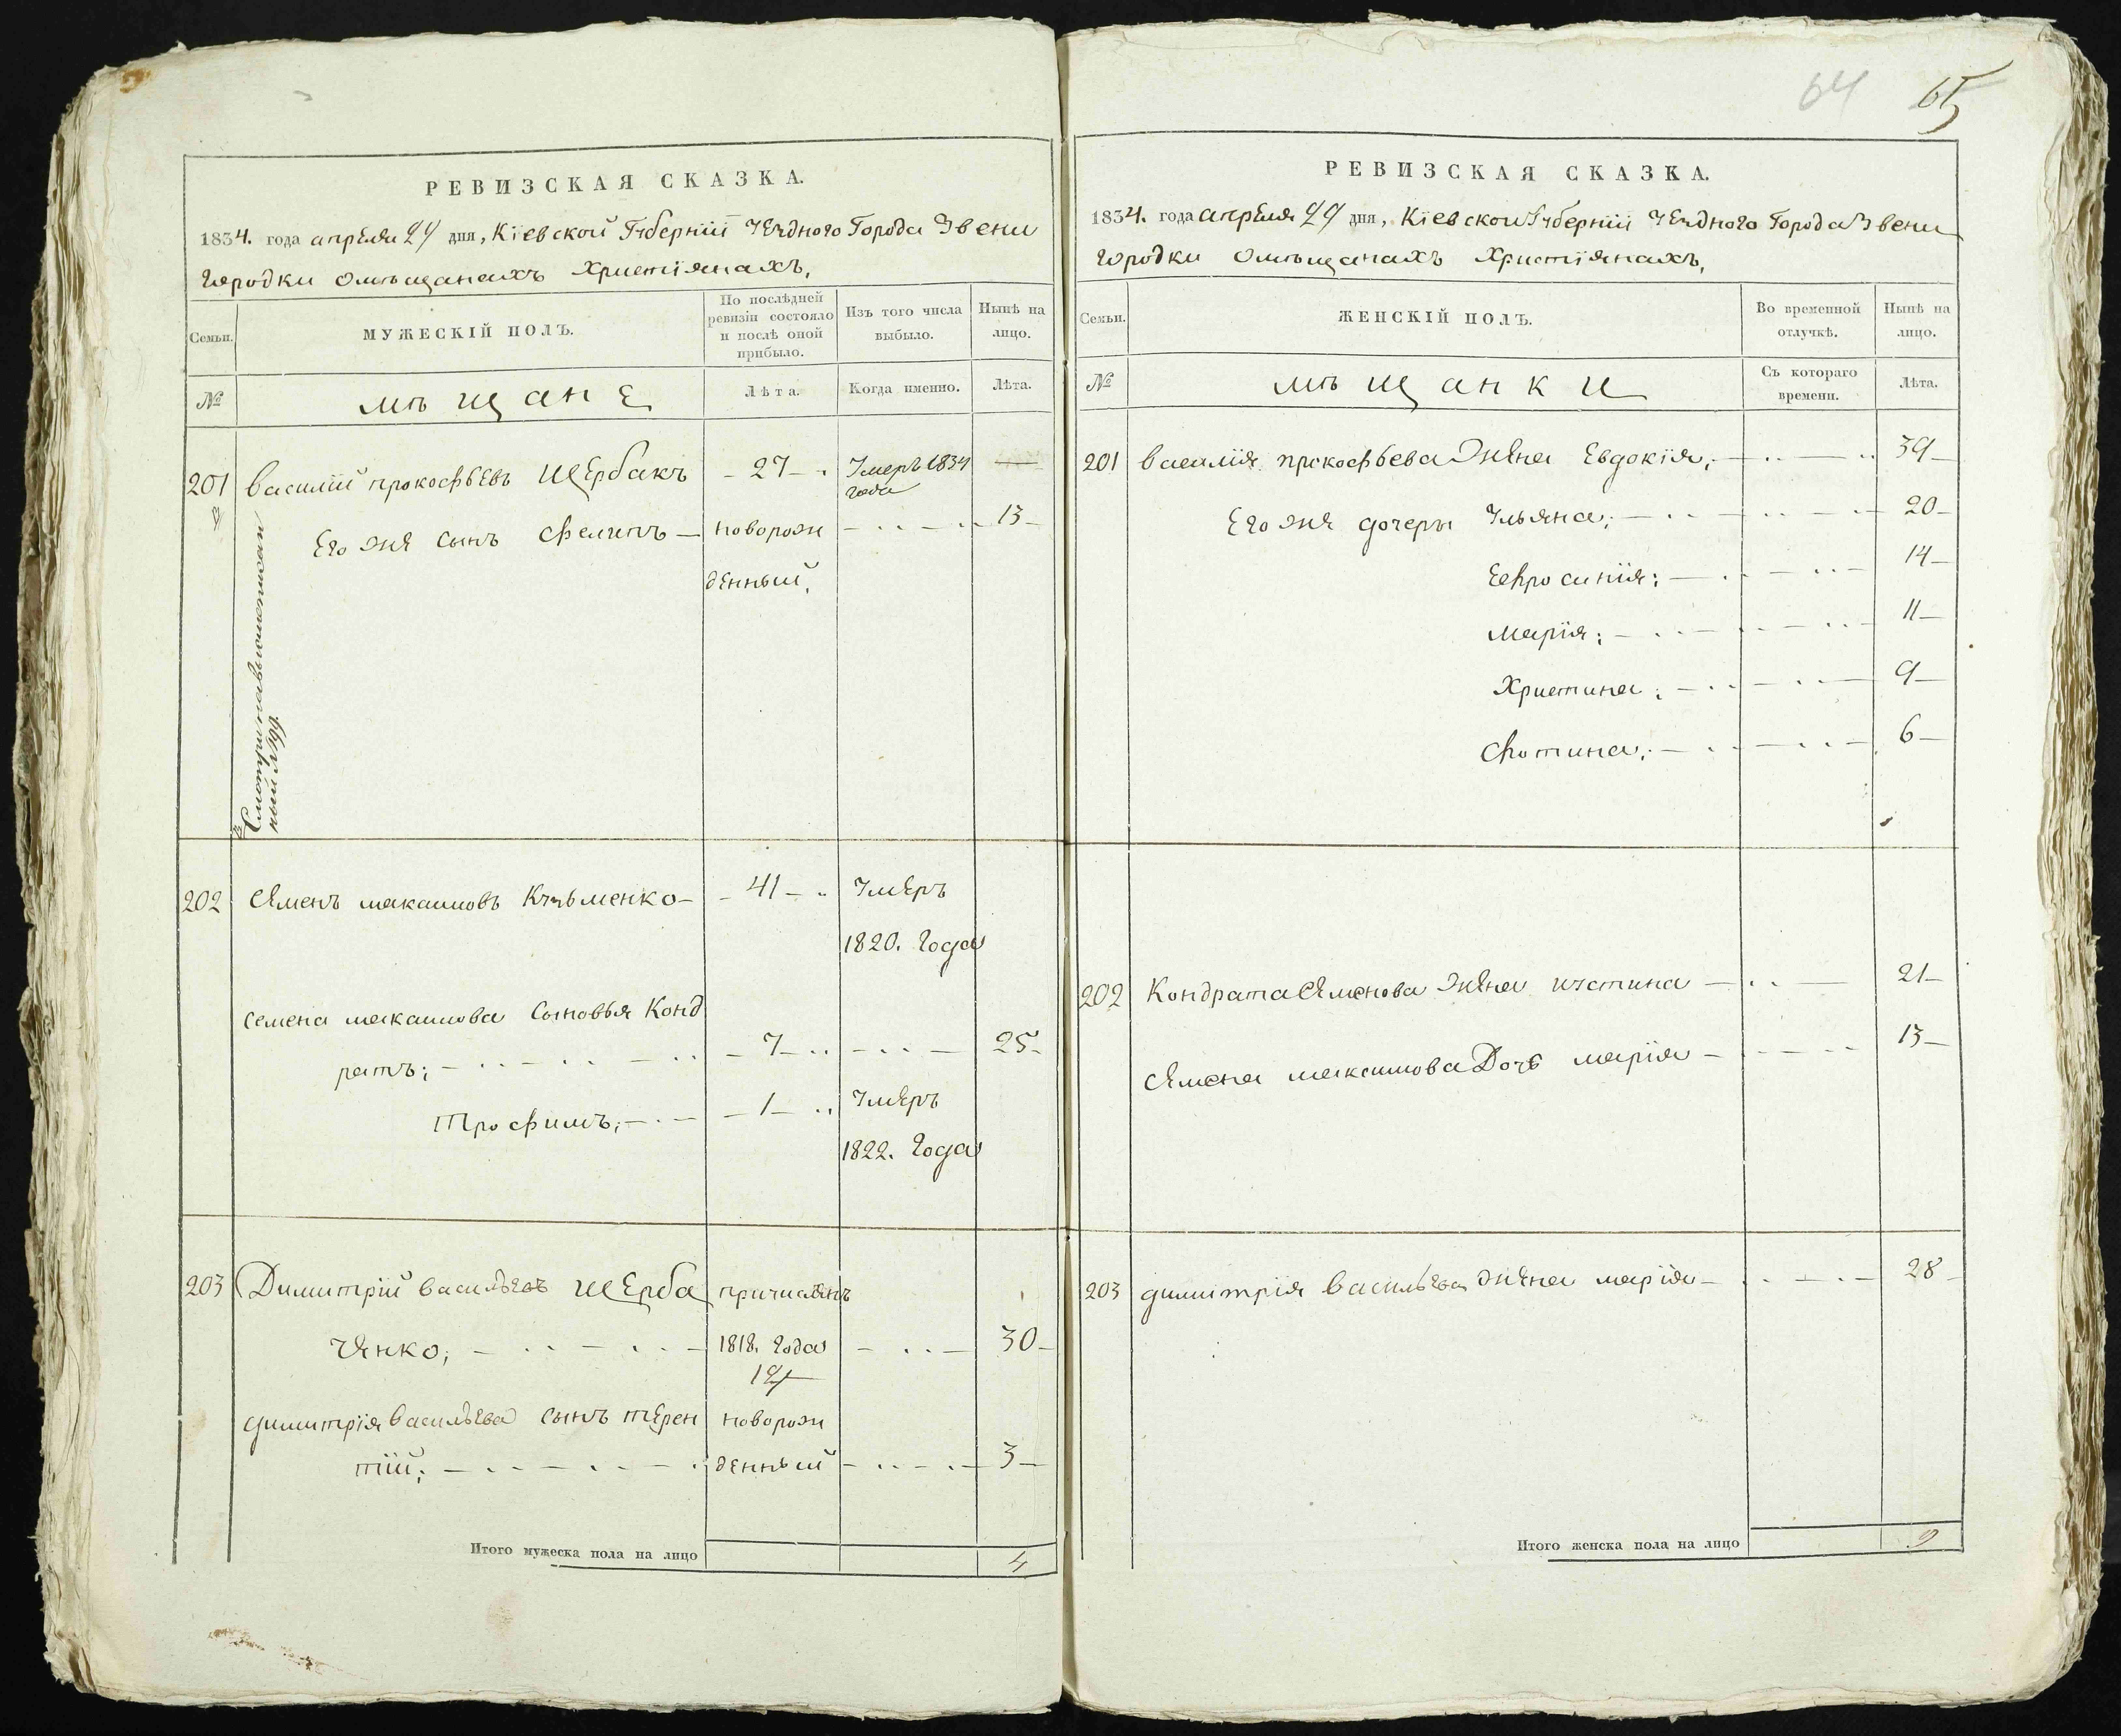 64 65
РЕВИЗСКАЯ СКАЗКА.
1834. года апреля 24 дня, Кіевской Губерніи Уезднаго Города Звени
городки омѣщанахъ Христіянахъ,
Семьи.
МУЖЕСКІЙ ПОЛЪ.
По послѣдней
ревизіи состояло
и послѣ оной
прибыло.
Изъ того числа
выбыло.
Нынѣ на
лицо.
№
мѣщане
Лѣта.
Когда именно.
Лѣта.
201 василій прокофьевъ Щербакъ – 27 – Умеръ 1834 —
года
Его же сынъ Филипъ — новорож – .. – .. 13 –
денный,
202 Семенъ максимовъ Кузьменко – – 41 – .. Умеръ
1820. Года
семена максимова сыновья Конд
ратъ; – .. – .. – .. – 7 – .. – .. – 25 –
Трофимъ; – . – – 1 – .. Умеръ
1822. Года
203 Димитрій васильевъ Щерба причисленъ
ченко; – .. – .. – 1818. Года – .. – 30 –
14
димитрія васильева сынъ терен новорож
тій; – .. – .. – денный – .. – .. – 3 –
Итого мужеска пола на лицо 4
РЕВИЗСКАЯ СКАЗКА.
1834. года апреля 24 дня, Кіевской Губерніи Уезднаго Города Звени
городки омѣщанахъ Христіянахъ,
Семьи.
ЖЕНСКІЙ ПОЛЪ.
Во временной
отлучкѣ.
Нынѣ на
лицо.
№
мѣщанки
Съ котораго
времени.
Лѣта.
201 василія прокофьева Жена Евдокія, – .. – .. 39 –
Его же дочери Ульяна; – .. – .. – 20 –
Ефросинія; – .. – .. – 14 –
Марія; – .. – .. – 11 –
Христина; – .. – .. – 9 –
Фотина; – .. – .. – 6 –
202 Кондрата Семенова Жена иустина – .. – 21 –
Семена максимова Дочь марія – – .. – 13 –
203 димитрія васильева жена марія – .. – .. – 28 –
Итого женска пола на лицо 9